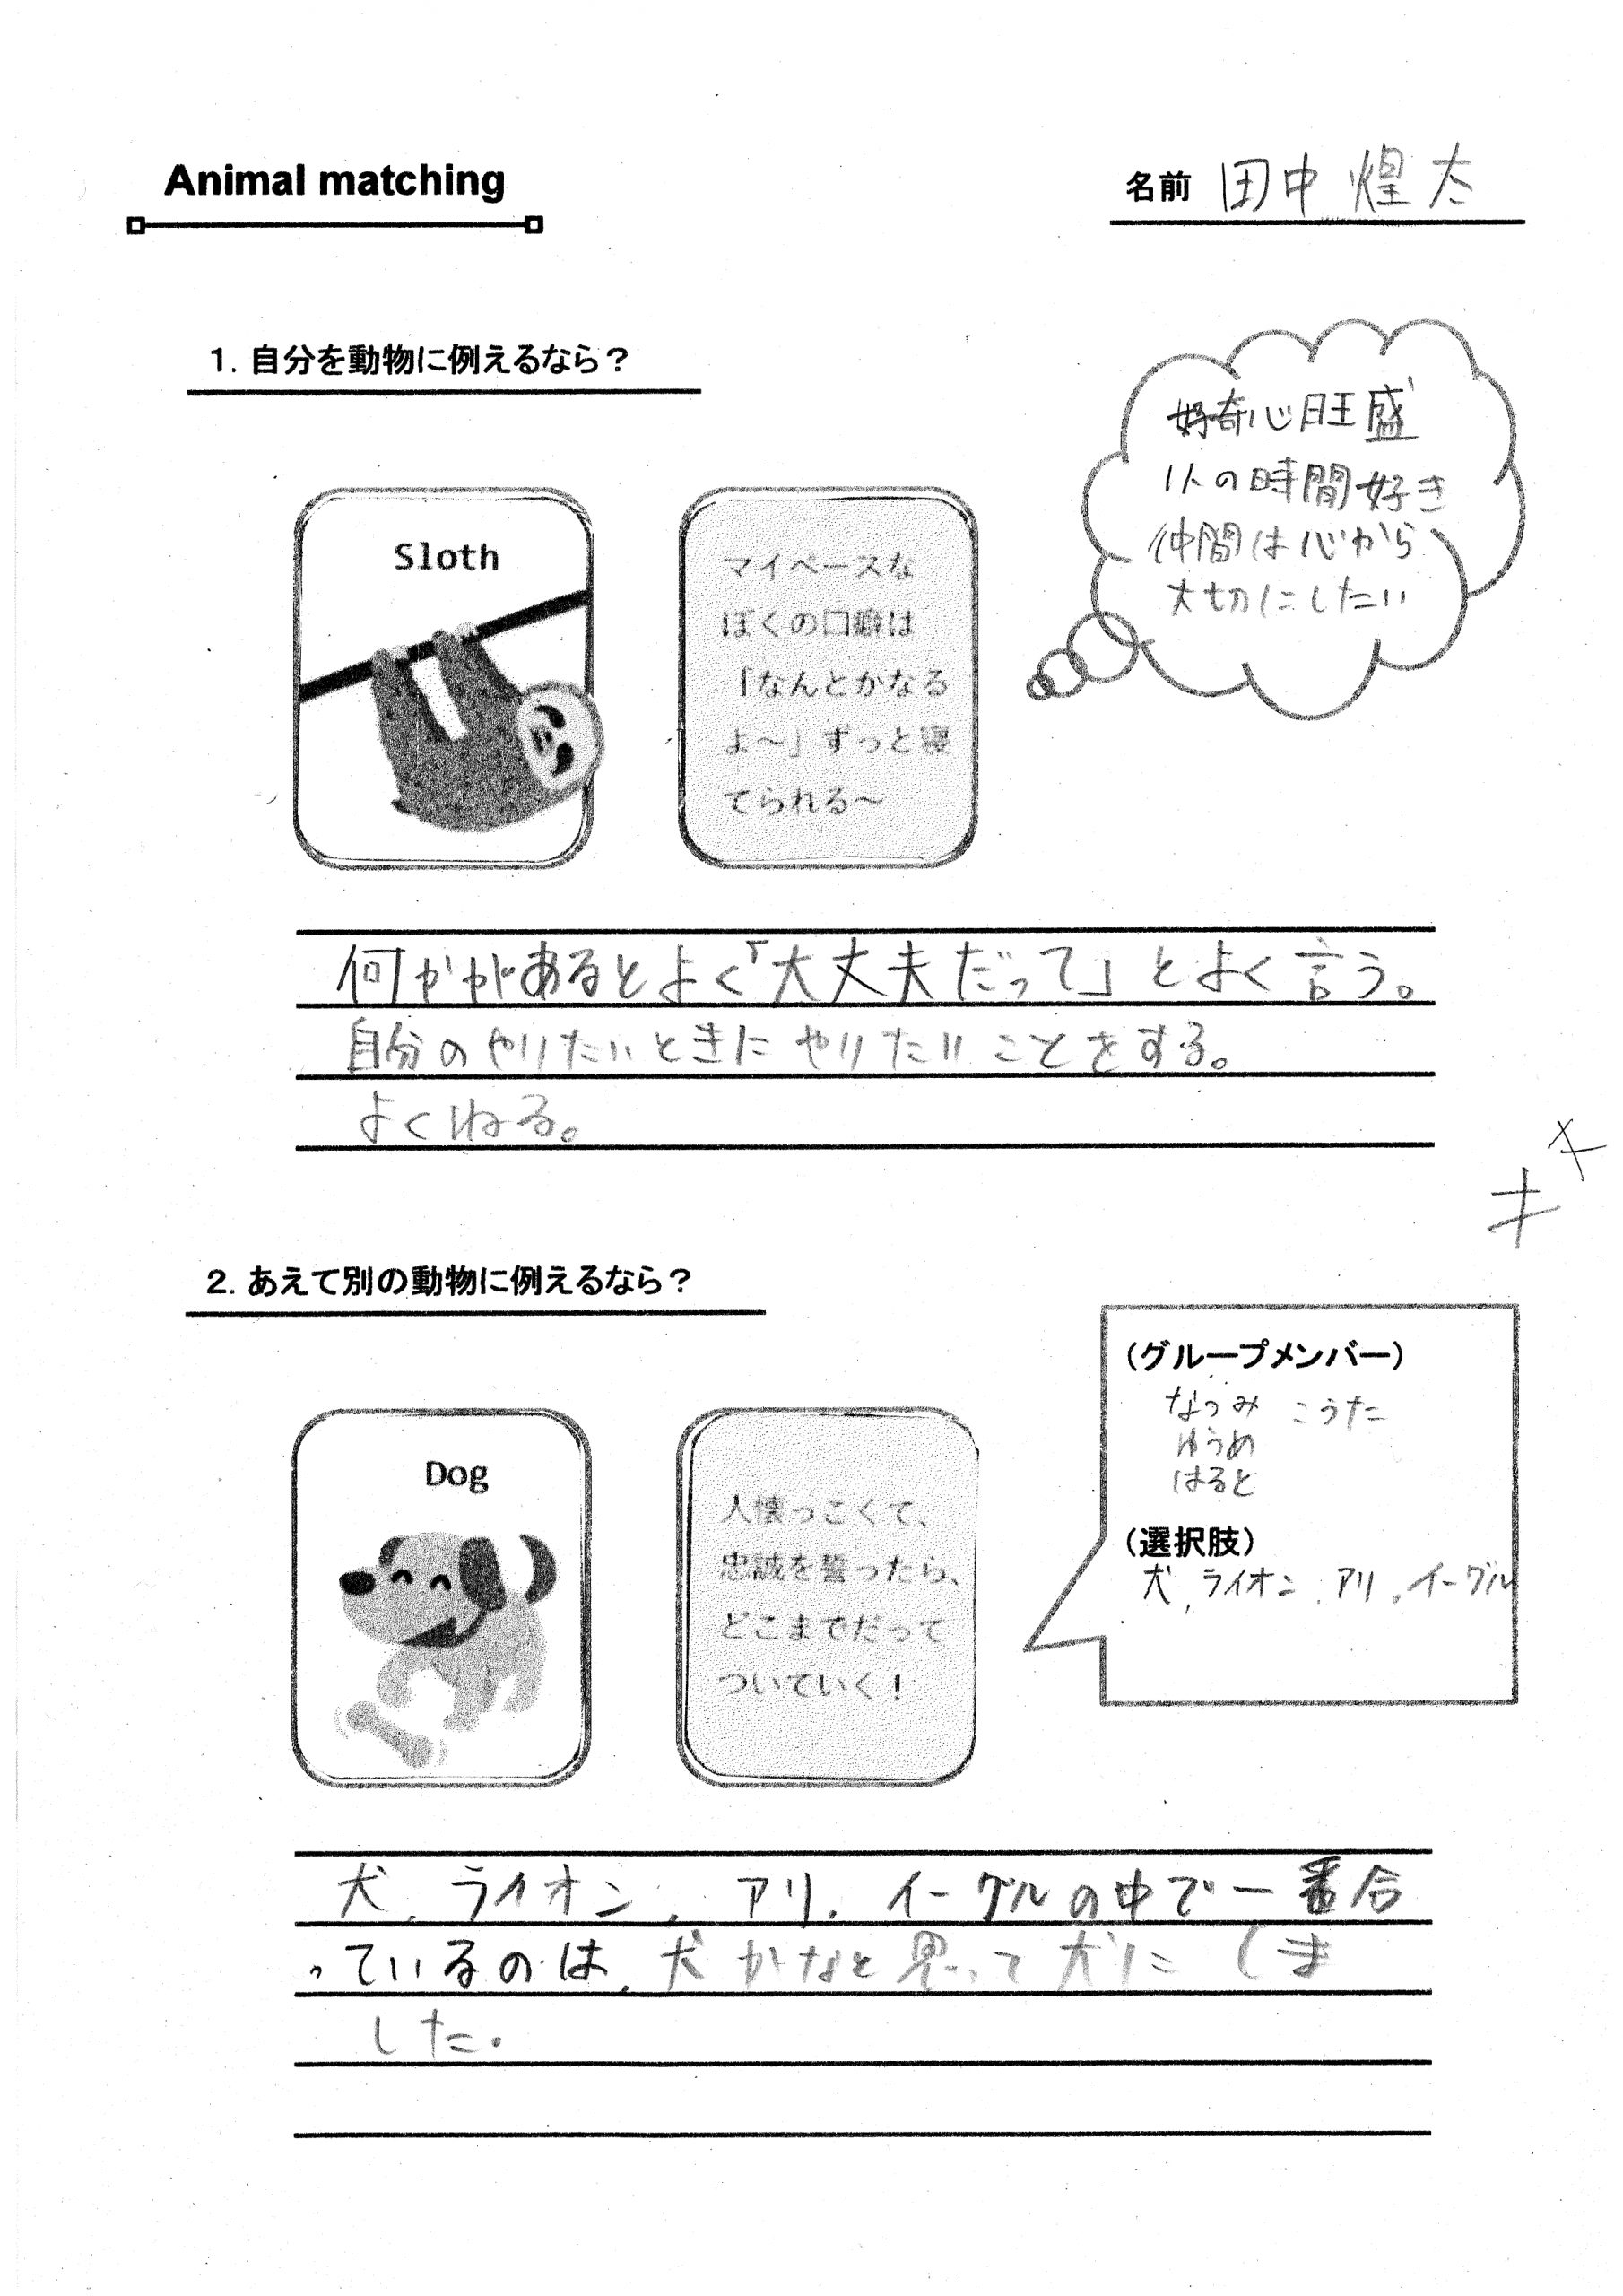 Animal matching
名前 田中 煌太
1. 自分を動物に例えるなら？
好奇心旺盛
1人の時間好き
仲間は心から
大切にしたい
Sloth
マイペースな
ぼくの口癖は
「なんとかなる
よ～」ずっと寝
てられる～
何かがあるとよく「大丈夫だって」とよく言う。
自分のやりたいときにやりたいことをする。
よくねる。
2. あえて別の動物に例えるなら？
(グループメンバー)
なつみ こうた
ゆうめ
はると
(選択肢)
犬, ライオン, アリ, イーグル
Dog
人懐っこくて、
忠誠を誓ったら、
どこまでだって
ついていく！
犬, ライオン, アリ, イーグルの中で一番合
っているのは, 犬かなと思って犬にしま
した。